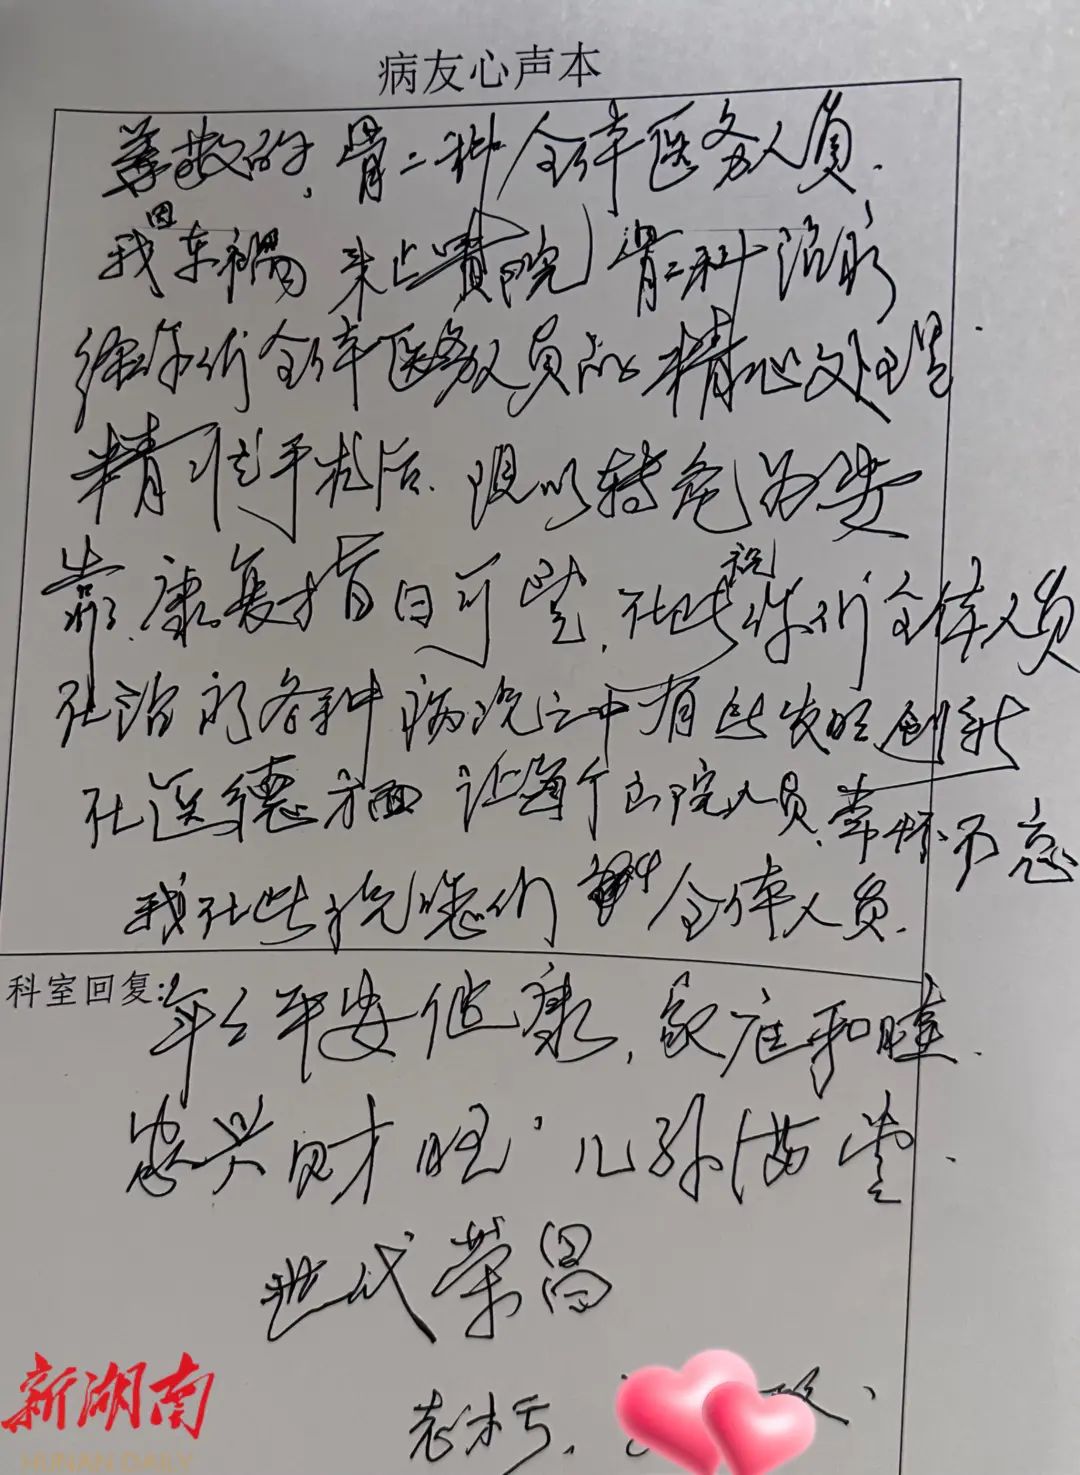 病友心声本
尊敬的,骨二科全体医务人员.
我因车祸来上贵院骨二科治疗
经你们全体医务人员的精心处理
精心手术后.现以转危为安
靠.康复指日可望.在此祝你们全体人员
在治疗各种病况之中有些发明创新
在医德方面让每个出院人员.常怀不忘
我在此祝愿你们全体人员.
科室回复:
年年平安健康,家庭和睦.
兴财旺,儿孙满堂.
世代荣昌